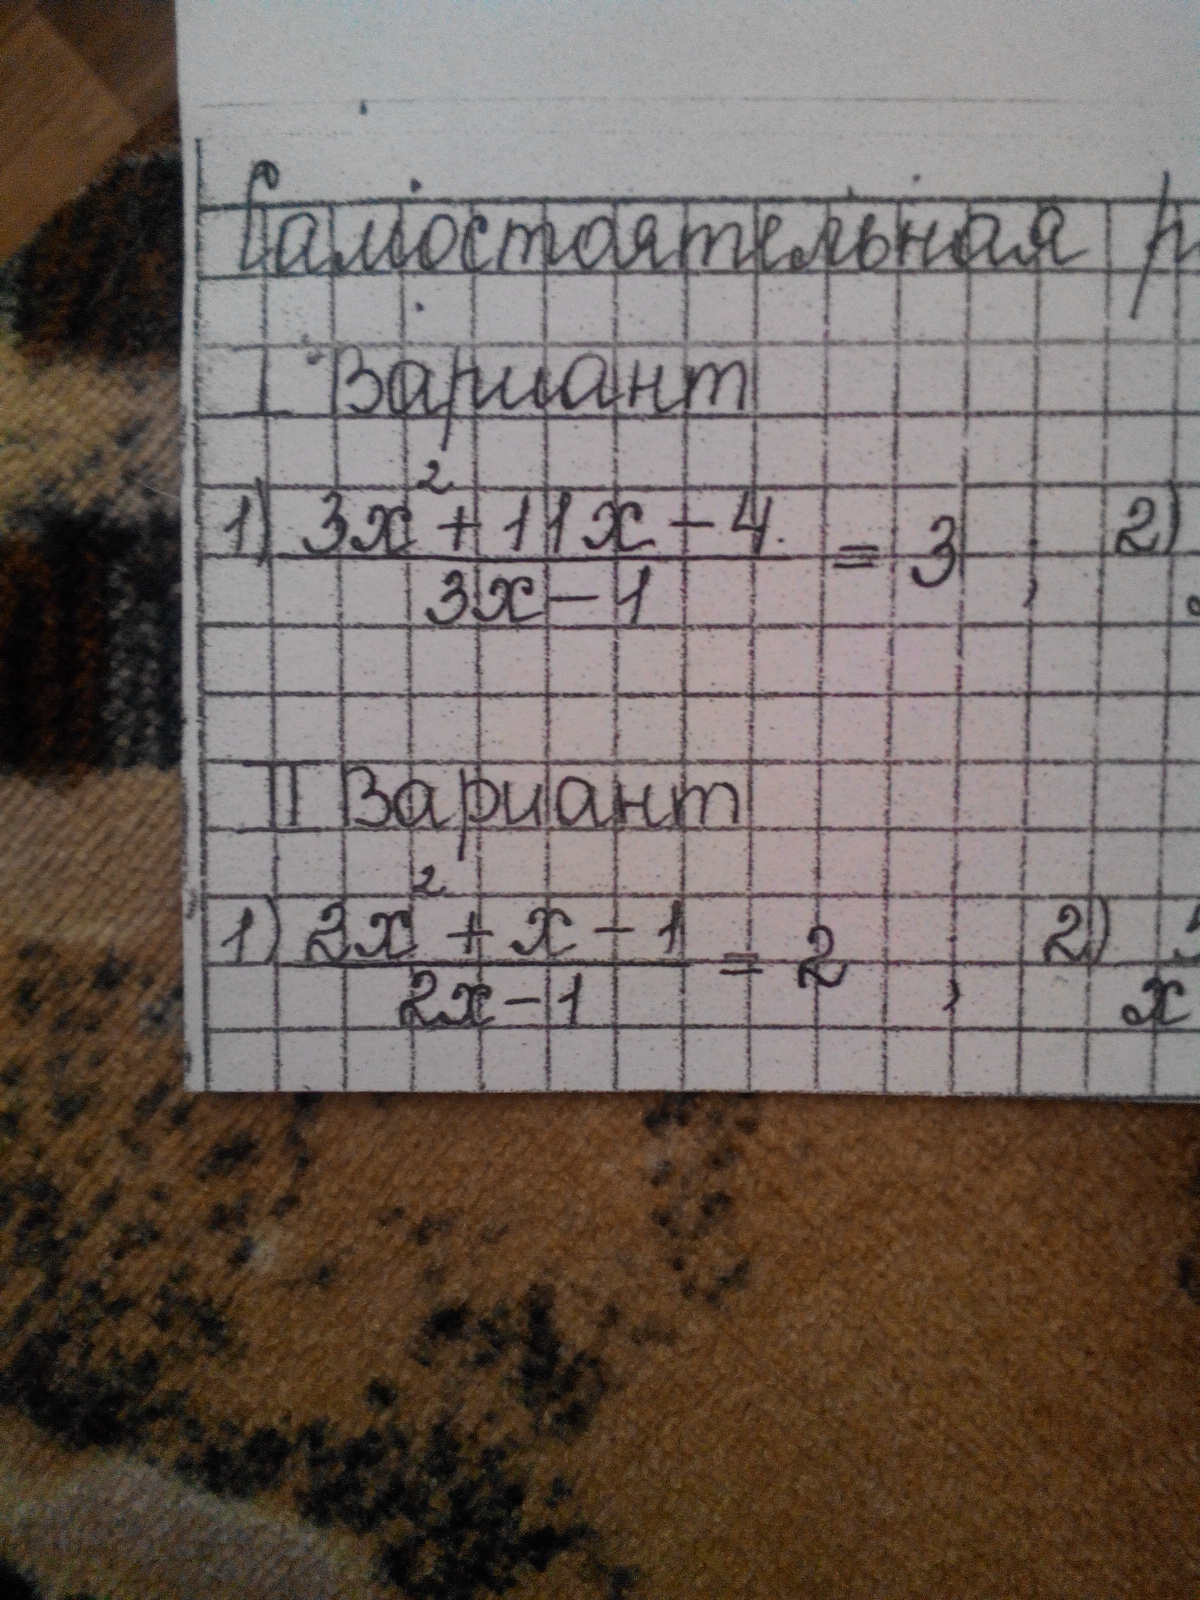 Самостоятельная
I Вариант
1) (3x² + 11x - 4) / (3x - 1) = 3 , 2)
II Вариант
1) (2x² + x - 1) / (2x - 1) = 2 , 2) x